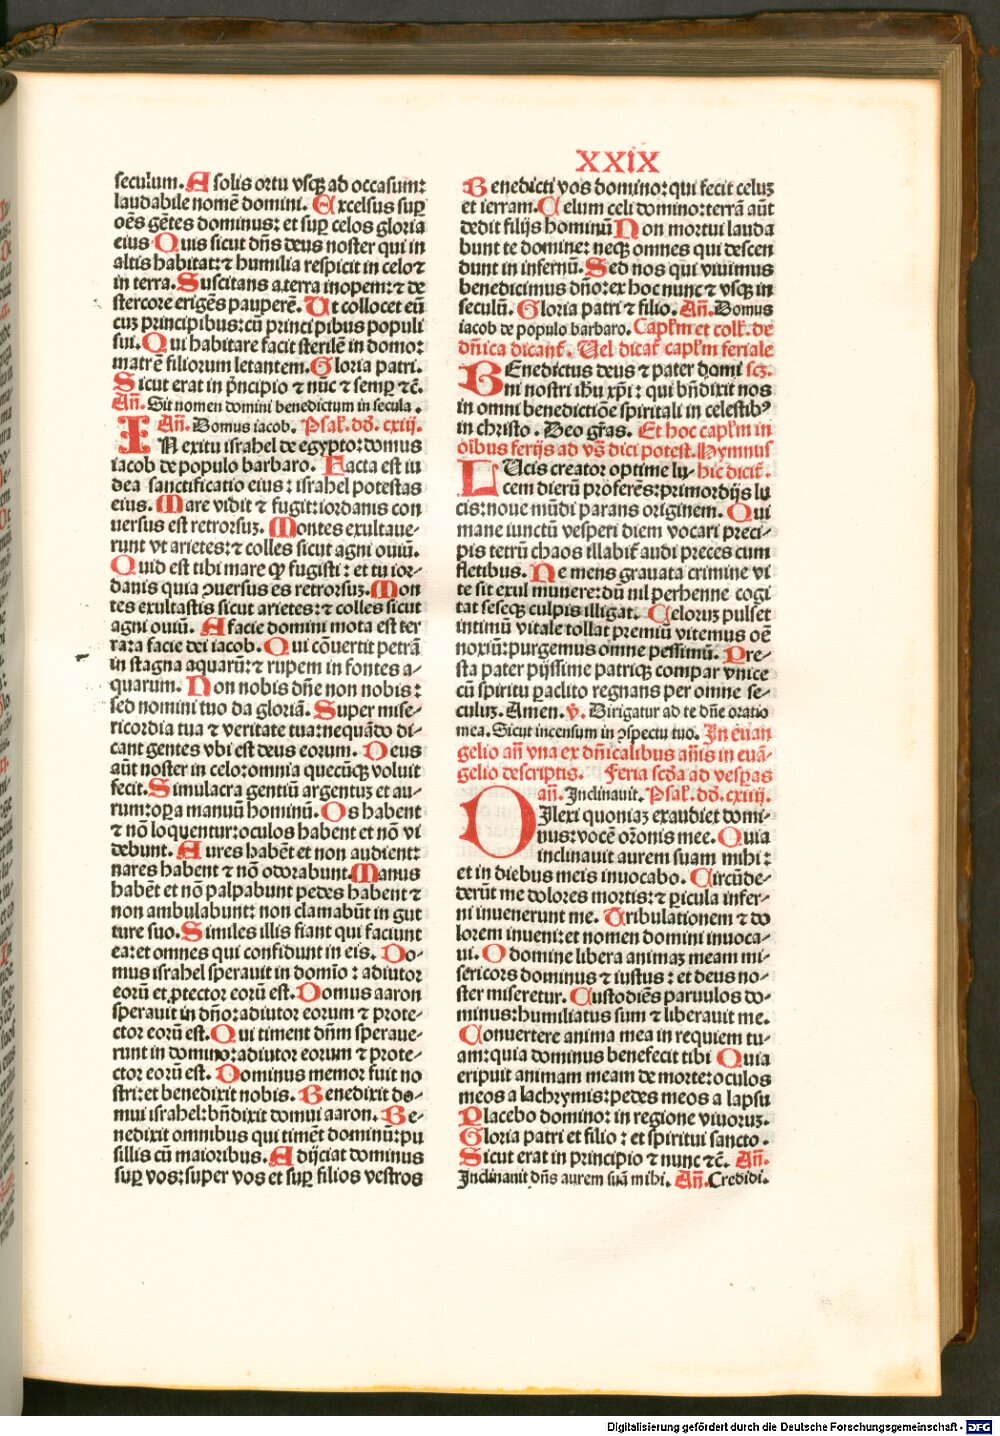 XXIX
seculum. A solis ortu vsqꝫ ad occasum:
laudabile nomē domini. Excelsus suꝑ
oēs gētes dominus: et suꝑ celos gloria
eius Quis sicut dn̄s deus noster qui in
altis habitat: ⁊ humilia respicit in celo ⁊
in terra. Suscitans a terra inopem: ⁊ de
stercore erigēs pauperē. Ut collocet eū
cuꝫ principibus: cū principibus populi
sui. Qui habitare facit sterilē in domo:
matrē filiorum letantem. Gloria patri.
Sicut erat in pͥncipio ⁊ nūc ⁊ semꝑ ⁊c̄.
An̄. Sit nomen domini benedictum in secula.
An̄. Domus iacob. Psal. dd. cxiij.
IN exitu israhel de egypto: domus
iacob de populo barbaro. Facta est iu
dea sanctificatio eius: israhel potestas
eius. Mare vidit ⁊ fugit: iordanis con
uersus est retrorsuꝫ. Montes exultaue-
runt vt arietes: ⁊ colles sicut agni ouiū.
Quid est tibi mare ꝙ fugisti: et tu ior-
danis quia ꝯuersus es retrorsuꝫ. Mon
tes exultastis sicut arietes: ⁊ colles sicut
agni ouiū. A facie domini mota est ter
ra: a facie dei iacob. Qui cōuertit petrā
in stagna aquarū: ⁊ rupem in fontes a-
quarum. Non nobis dn̄e non nobis:
sed nomini tuo da gloriā. Super mise-
ricordia tua ⁊ veritate tua: nequādo di-
cant gentes vbi est deus eorum. Deus
aūt noster in celo: omnia quecūqꝫ voluit
fecit. Simulacra gentiū argentuꝫ et au-
rum: oꝑa manuū hominū. Os habent
⁊ nō loquentur: oculos habent et nō vi
debunt. Aures habēt et non audient:
nares habent ⁊ nō odorabunt. Manus
habēt et nō palpabunt pedes habent ⁊
non ambulabunt: non clamabūt in gut
ture suo. Similes illis fiant qui faciunt
ea: et omnes qui confidunt in eis. Do-
mus israhel sperauit in domīo: adiutor
eorū et ꝓtector eorū est. Domus aaron
sperauit in dn̄o: adiutor eorum ⁊ prote-
ctor eorū est. Qui timent dn̄m speraue-
runt in domino: adiutor eorum ⁊ prote-
ctor eorū est. Dominus memor fuit no
stri: et benedixit nobis. Benedixit do-
mui israhel: bn̄dixit domui aaron. Be-
nedixit omnibus qui timēt dominū: pu
sillis cū maioribus. Adijciat dominus
suꝑ vos: super vos et suꝑ filios vestros
Benedicti vos domino: qui fecit celuꝫ
et terram. Celum celi domino: terrā aūt
dedit filijs hominū Non mortui lauda
bunt te domine: neqꝫ omnes qui descen
dunt in infernū. Sed nos qui viuimus
benedicimus dn̄o: ex hoc nunc ⁊ vsqꝫ in
seculū. Gloria patri ⁊ filio. An̄. Domus
iacob de populo barbaro. Capl̄m et coll. de
dn̄ica dicant̄. Uel dicat̄ capl̄m feriale
BEnedictus deus ⁊ pater domi scꝫ.
ni nostri ihu xp̄i: qui bn̄dixit nos
in omni benedictiōe spiritali in celestibꝰ
in christo. Deo gr̄as. Et hoc capl̄m in
oībus ferijs ad vs̄ dici potest. Hymnus
LUcis creator optime lu- hic dicit̄.
cem dierū proferēs: primordijs lu
cis: noue mūdi parans originem. Qui
mane iunctū vesperi diem vocari preci-
pis tetrū chaos illabit̄ audi preces cum
fletibus. Ne mens grauata crimine vi
te sit exul munere: dū nil perhenne cogi
tat seseqꝫ culpis illigat. Celoruꝫ pulset
intimū vitale tollat premiū vitemus oē
noxiū: purgemus omne pessimū. Pre-
sta pater pijssime patriqꝫ compar vnice
cū spiritu ꝑaclito regnans per omne se-
culuꝫ. Amen. ℣. Dirigatur ad te dn̄e oratio
mea. Sicut incensum in ꝯspectu tuo. In euan
gelio an̄ vna ex dn̄icalibus an̄is in euā-
gelio descriptis. Feria scd̄a ad vesꝑas
an̄. Inclinauit. Psal. dd. cxiiij.
DIlexi quoniaꝫ exaudiet domi-
nus: vocē or̄onis mee. Quia
inclinauit aurem suam mihi:
et in diebus meis inuocabo. Circūde-
derūt me dolores mortis: ⁊ ꝑicula infer-
ni inuenerunt me. Tribulationem ⁊ do
lorem inueni: et nomen domini inuoca-
ui. O domine libera animaꝫ meam mi-
sericors dominus ⁊ iustus: et deus no-
ster miseretur. Custodiēs paruulos do-
minus: humiliatus sum ⁊ liberauit me.
Conuertere anima mea in requiem tu-
am: quia dominus benefecit tibi Quia
eripuit animam meam de morte: oculos
meos a lachrymis: pedes meos a lapsu
Placebo domino: in regione viuoruꝫ.
Gloria patri et filio: et spiritui sancto.
Sicut erat in principio ⁊ nunc ⁊c̄. An̄.
Inclinauit dn̄s aurem suā mihi. An̄. Credidi.
Digitalisierung gefördert durch die Deutsche Forschungsgemeinschaft - DFG